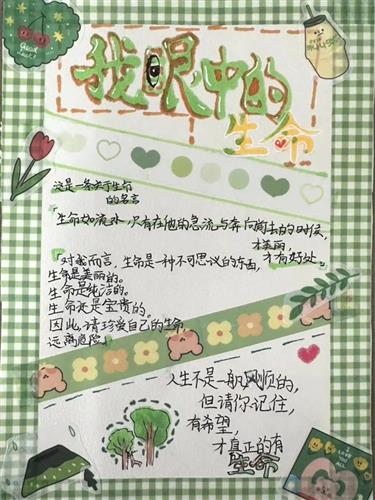 我眼中的
生命
这是一条关于生命
的名言
"生命如流水,只有在他的急流与奔向前去的时候,
才美丽,
才有好处"
"对我而言,生命是一种不可思议的东西,
生命是美丽的。
生命是纯洁的。
生命还是宝贵的。
因此,请珍爱自己的生命,
远离危险"
人生不是一帆风顺的,
但请你记住,
有希望,
才真正的有
生命